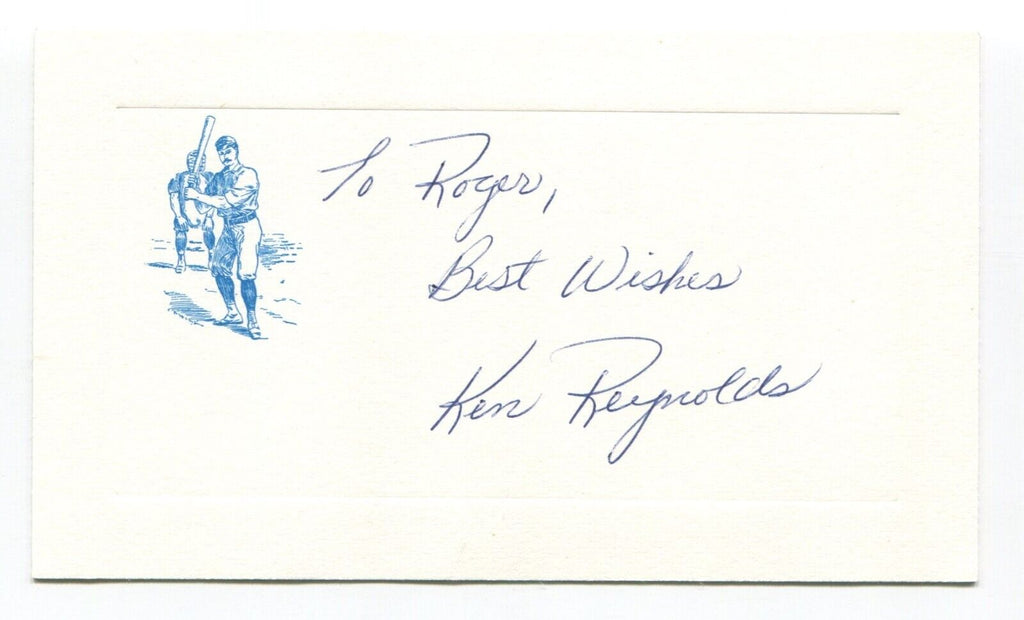 To Roger,
Best Wishes
Ken Reynolds